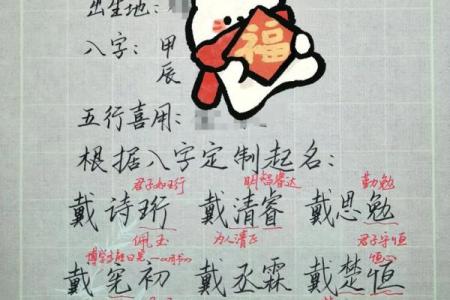 出生地:
八字: 甲
辰
福
五行喜用:
根据八字定制起名:
君子如珩 明智睿达 勤勉
戴诗珩 戴清睿 戴思勉
佩玉 为人清正 君子守恒
恒心
戴宪初 戴丞霖 戴楚恒